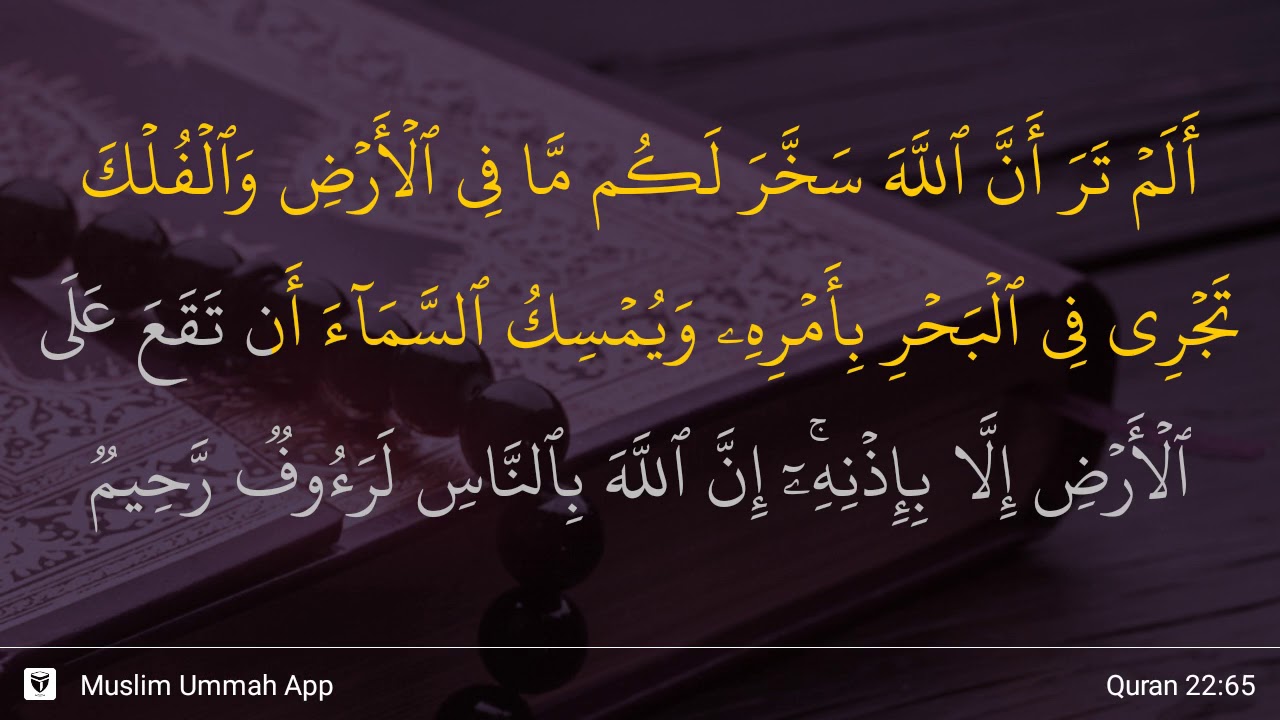 أَلَمْ تَرَ أَنَّ ٱللَّهَ سَخَّرَ لَكُم مَّا فِى ٱلْأَرْضِ وَٱلْفُلْكَ
تَجْرِى فِى ٱلْبَحْرِ بِأَمْرِهِۦ وَيُمْسِكُ ٱلسَّمَآءَ أَن تَقَعَ عَلَى
ٱلْأَرْضِ إِلَّا بِإِذْنِهِۦٓ ۚ إِنَّ ٱللَّهَ بِٱلنَّاسِ لَرَءُوفٌ رَّحِيمٌ
Muslim Ummah App
Quran 22:65